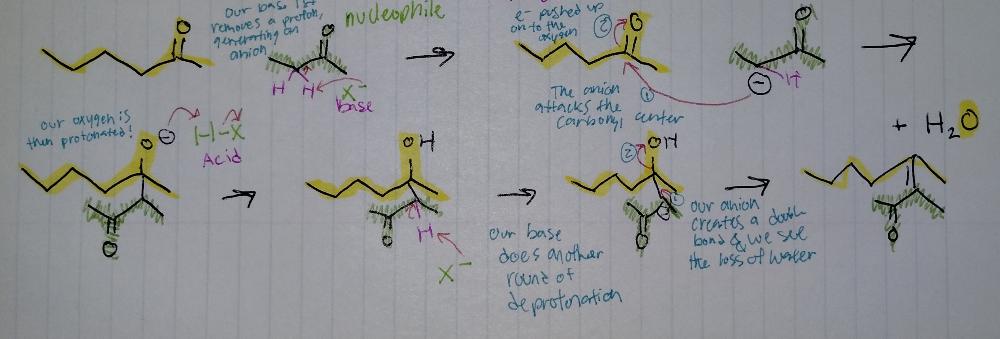 our base 1st
removes a proton,
generating an
anion
nucleophile
O
O
H H
X⁻
base
e- pushed up
on to the
oxygen
②
O
O
⊖
H
The anion
attacks the
carbonyl center
①
our oxygen is
then protonated!
O ⊖
H-X
Acid
O
OH
O
H
X⁻
our base
does another
round of
deprotonation
OH
②
①
⊖
O
our anion
creates a double
bond & we see
the loss of water
+ H₂O
O